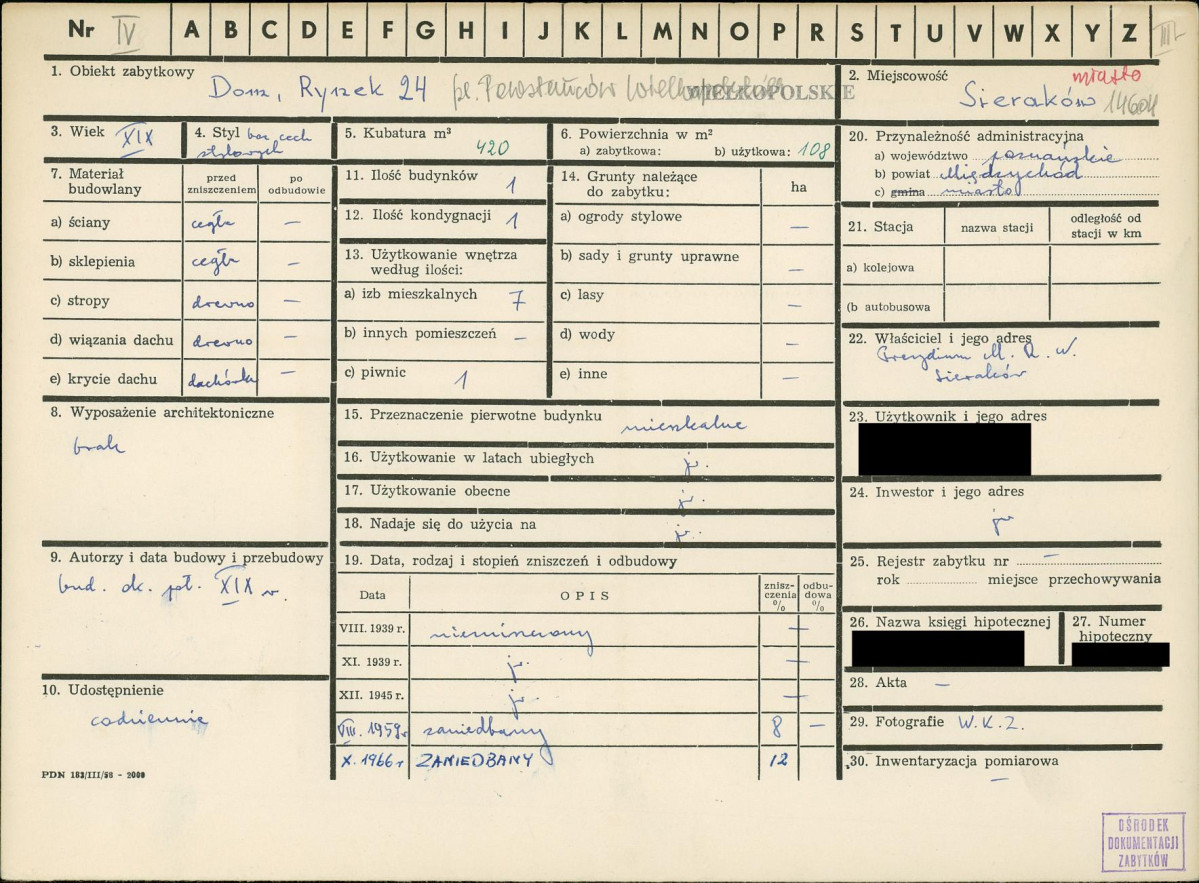 Nr IV A B C D E F G H I J K L M N O P R S T U V W X Y Z III
1. Obiekt zabytkowy Dom, Rynek 24 pl. Powstańców Wielkopolskich
WIELKOPOLSKIE
2. Miejscowość miasto
Sieraków 14604
3. Wiek XIX
4. Styl bez cech
stylowych
5. Kubatura m³
420
6. Powierzchnia w m²
a) zabytkowa: b) użytkowa: 108
7. Materiał
budowlany
przed
zniszczeniem
po
odbudowie
a) ściany cegła —
b) sklepienia cegła —
c) stropy drewno —
d) wiązania dachu drewno —
e) krycie dachu dachówka —
8. Wyposażenie architektoniczne
brak
9. Autorzy i data budowy i przebudowy
bud. ok. poł. XIX w.
10. Udostępnienie
codziennie
PDN 182/III/58 - 2000
11. Ilość budynków 1
12. Ilość kondygnacji 1
13. Użytkowanie wnętrza
według ilości:
a) izb mieszkalnych 7
b) innych pomieszczeń —
c) piwnic 1
14. Grunty należące
do zabytku:
ha
a) ogrody stylowe —
b) sady i grunty uprawne —
c) lasy —
d) wody —
e) inne —
15. Przeznaczenie pierwotne budynku mieszkalne
16. Użytkowanie w latach ubiegłych j.
17. Użytkowanie obecne j.
18. Nadaje się do użycia na j.
19. Data, rodzaj i stopień zniszczeń i odbudowy
Data OPIS
znisz-
czenia
%
odbu-
dowa
%
VIII. 1939 r. nieminerowany —
XI. 1939 r. j. —
XII. 1945 r. j. —
VIII. 1959 r zaniedbany 8 —
X. 1966 r ZANIEDBANY 12
20. Przynależność administracyjna
a) województwo poznańskie
b) powiat Międzychód
c) gmina miasto
21. Stacja nazwa stacji
odległość od
stacji w km
a) kolejowa
(b autobusowa
22. Właściciel i jego adres
Prezydium M. R. N.
Sieraków
23. Użytkownik i jego adres
24. Inwestor i jego adres
jw
25. Rejestr zabytku nr —
rok miejsce przechowywania
26. Nazwa księgi hipotecznej
27. Numer
hipoteczny
28. Akta —
29. Fotografie W.K.Z.
30. Inwentaryzacja pomiarowa
—
OŚRODEK
DOKUMENTACJI
ZABYTKÓW